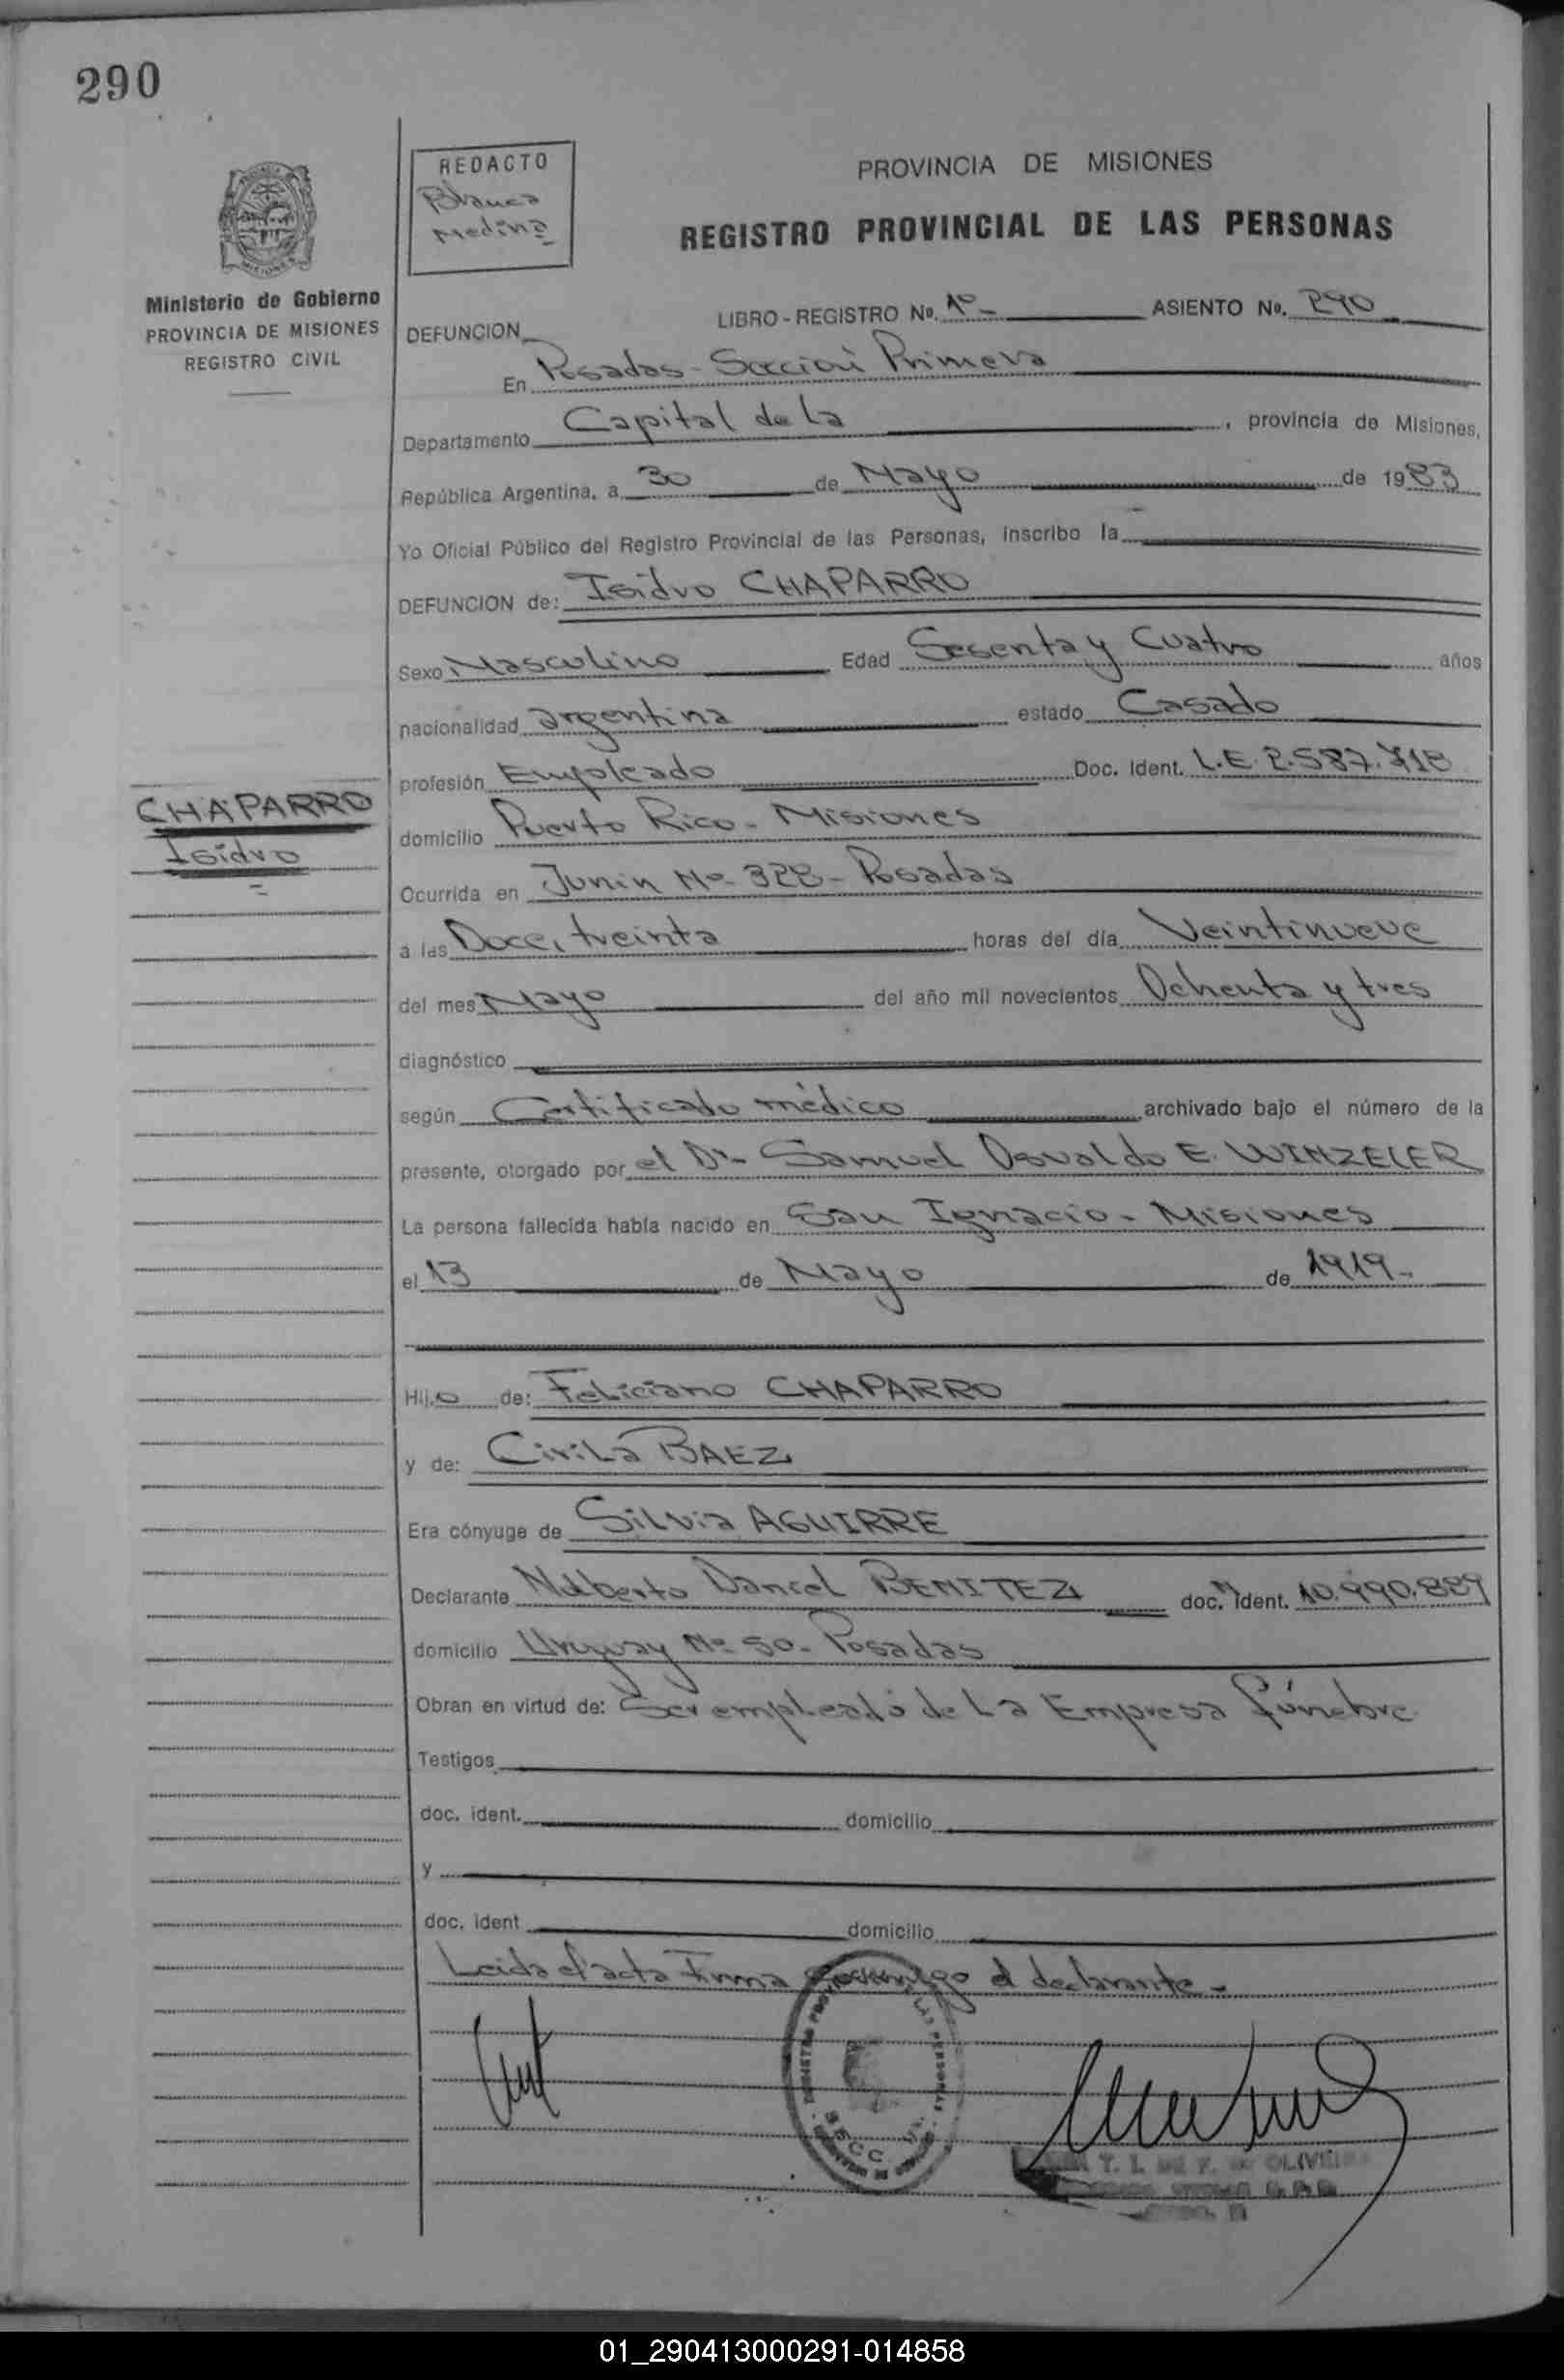 290
REDACTO
Blanca
Medina
PROVINCIA DE MISIONES
REGISTRO PROVINCIAL DE LAS PERSONAS
MISIONES
Ministerio de Gobierno
PROVINCIA DE MISIONES
REGISTRO CIVIL
DEFUNCION
LIBRO - REGISTRO No. 1º - ASIENTO No. 290
En Posadas - Sección Primera
Departamento Capital de la , provincia de Misiones,
República Argentina, a 30 de Mayo de 1983
Yo Oficial Público del Registro Provincial de las Personas, inscribo la
DEFUNCION de: Isidro CHAPARRO
Sexo Masculino Edad Sesenta y Cuatro años
nacionalidad argentina estado Casado
profesión Empleado Doc. Ident. L.E. 2.587.718
CHAPARRO
Isidro
domicilio Puerto Rico - Misiones
Ocurrida en Junin Nº 328 - Posadas
a las Doce, treinta horas del día Veintinueve
del mes Mayo del año mil novecientos Ochenta y tres
diagnóstico
según Certificado médico archivado bajo el número de la
presente, otorgado por el Dr. Samuel Osvaldo E. WINZELER
La persona fallecida había nacido en San Ignacio - Misiones
el 13 de Mayo de 1919 -
Hijo de: Feliciano CHAPARRO
y de: Cirila BAEZ
Era cónyuge de Silvia AGUIRRE
Declarante Daniel BENITEZ doc. ident. 10.990.889
domicilio Uruguay Nº 50 - Posadas
Obran en virtud de: Ser empleado de la Empresa fúnebre
Testigos
doc. ident. domicilio
y
doc. ident domicilio
Leida el acta firma conmigo el declarante -
T. I. DE F. DE OLIVEIRA
01_290413000291-014858